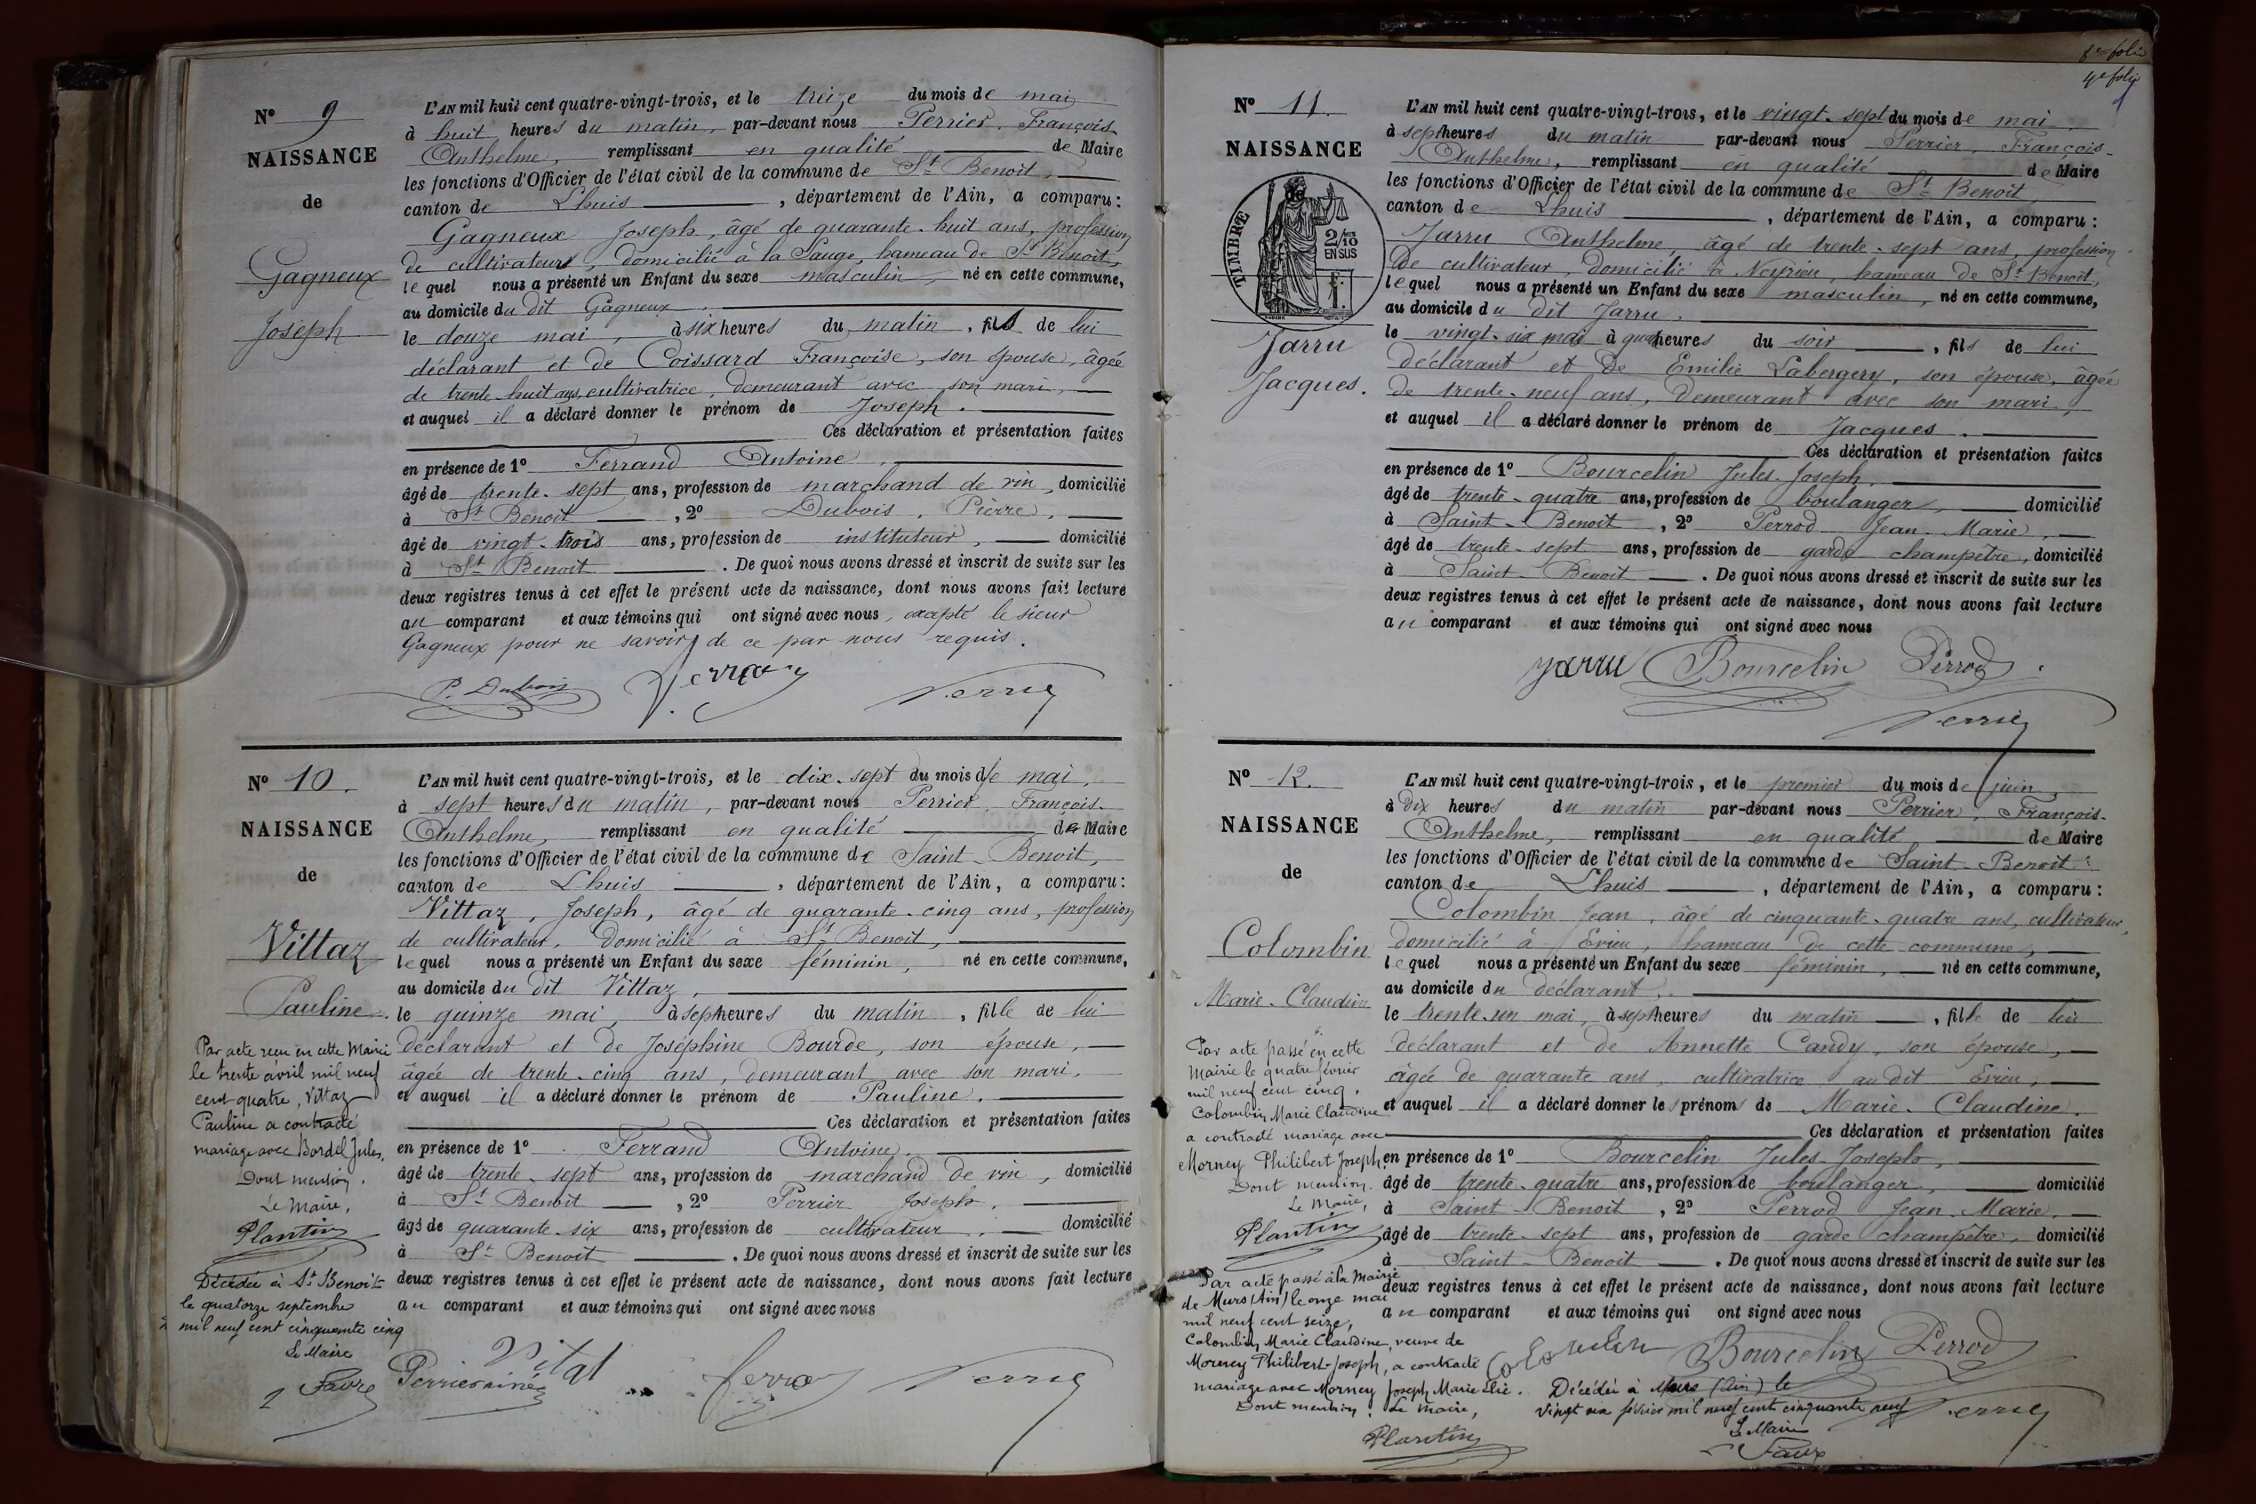 Nº 9
NAISSANCE
de
Gagneux
Joseph
L'AN mil huit cent quatre-vingt-trois, et le treize du mois de mai
à huit heures du matin, par-devant nous Perrier, François-
Anthelme, remplissant en qualité de Maire
les fonctions d'Officier de l'état civil de la commune de St Benoit,
canton de Lhuis, département de l'Ain, a comparu:
Gagneux Joseph, âgé de quarante-huit ans, profession
de cultivateur, domicilié à la Sauge, hameau de St Benoit,
lequel nous a présenté un Enfant du sexe masculin, né en cette commune,
au domicile du dit Gagneux
le douze mai, à six heures du matin, fils de lui
déclarant et de Coissard Françoise, son épouse, âgée
de trente-huit ans, cultivatrice, demeurant avec son mari,
et auquel il a déclaré donner le prénom de Joseph.
Ces déclaration et présentation faites
en présence de 1º Ferrand Antoine,
âgé de trente-sept ans, profession de marchand de vin, domicilié
à St Benoit, 2º Dubois, Pierre,
âgé de vingt-trois ans, profession de instituteur, domicilié
à St Benoit. De quoi nous avons dressé et inscrit de suite sur les
deux registres tenus à cet effet le présent acte de naissance, dont nous avons fait lecture
au comparant et aux témoins qui ont signé avec nous, excepté le sieur
Gagneux pour ne savoir, de ce par nous requis.
P. Dubois Ferrand Perrier
Nº 10.
NAISSANCE
de
Vittaz
Pauline.
Par acte reçu en cette Mairie
le trente avril mil neuf
cent quatre, Vittaz
Pauline a contracté
mariage avec Bordel Jules,
Dont mention.
Le Maire,
Plantin
Décédée à St Benoit
le quatorze septembre
mil neuf cent cinquante cinq
Le Maire
Favre
L'AN mil huit cent quatre-vingt-trois, et le dix-sept du mois de mai,
à sept heures du matin, par-devant nous Perrier, François-
Anthelme, remplissant en qualité de Maire
les fonctions d'Officier de l'état civil de la commune de Saint-Benoit,
canton de Lhuis, département de l'Ain, a comparu:
Vittaz, Joseph, âgé de quarante-cinq ans, profession
de cultivateur, domicilié à St Benoit,
lequel nous a présenté un Enfant du sexe féminin, né en cette commune,
au domicile du dit Vittaz,
le quinze mai, à sept heures du matin, fille de lui
déclarant et de Joséphine Bourde, son épouse,
âgée de trente-cinq ans, demeurant avec son mari,
et auquel il a déclaré donner le prénom de Pauline.
Ces déclaration et présentation faites
en présence de 1º Ferrand Antoine,
âgé de trente-sept ans, profession de marchand de vin, domicilié
à St Benoit, 2º Perrier Joseph,
âgé de quarante-six ans, profession de cultivateur, domicilié
à St Benoit. De quoi nous avons dressé et inscrit de suite sur les
deux registres tenus à cet effet le présent acte de naissance, dont nous avons fait lecture
au comparant et aux témoins qui ont signé avec nous
Perrier ainé Perrier
4e folio
Nº 11.
NAISSANCE
de
TIMBRE
2/10
EN SUS
Jarru
Jacques.
L'AN mil huit cent quatre-vingt-trois, et le vingt-sept du mois de mai,
à sept heures du matin par-devant nous Perrier, François-
Anthelme, remplissant en qualité de Maire
les fonctions d'Officier de l'état civil de la commune de St Benoit
canton de Lhuis, département de l'Ain, a comparu:
Jarru Anthelme, âgé de trente-sept ans, profession
de cultivateur, domicilié à Neyrieu, hameau de St Benoit,
lequel nous a présenté un Enfant du sexe masculin, né en cette commune,
au domicile du dit Jarru.
le vingt-six mai à quatre heures du soir, fils de lui
déclarant et de Emilie Labergery, son épouse, âgée
de trente-neuf ans, demeurant avec son mari,
et auquel il a déclaré donner le prénom de Jacques.
Ces déclaration et présentation faites
en présence de 1º Bourcelin Jules-Joseph,
âgé de trente-quatre ans, profession de boulanger, domicilié
à Saint-Benoit, 2º Perrod Jean-Marie,
âgé de trente-sept ans, profession de garde champêtre, domicilié
à Saint-Benoit. De quoi nous avons dressé et inscrit de suite sur les
deux registres tenus à cet effet le présent acte de naissance, dont nous avons fait lecture
au comparant et aux témoins qui ont signé avec nous
Jarru Bourcelin Perrod
Perrier
Nº 12.
NAISSANCE
de
Colombin
Marie-Claudine
Par acte passé en cette
Mairie le quatre février
mil neuf cent cinq,
Colombin Marie Claudine
a contracté mariage avec
Morney Philibert Joseph.
Dont mention.
Le Maire,
Plantin
Par acte passé à la Mairie
de Murs (Ain) le onze mai
mil neuf cent seize,
Colombin Marie Claudine, veuve de
Morney Philibert-Joseph, a contracté
mariage avec Morney Joseph Marie Elie.
Dont mention. Le Maire,
Plantin
L'AN mil huit cent quatre-vingt-trois, et le premier du mois de juin,
à dix heures du matin par-devant nous Perrier, François-
Anthelme, remplissant en qualité de Maire
les fonctions d'Officier de l'état civil de la commune de Saint-Benoit
canton de Lhuis, département de l'Ain, a comparu:
Colombin Jean, âgé de cinquante-quatre ans, cultivateur,
domicilié à Evieu, hameau de cette commune,
lequel nous a présenté un Enfant du sexe féminin, né en cette commune,
au domicile du déclarant,
le trente-un mai, à sept heures du matin, fille de lui
déclarant et de Annette Candy, son épouse,
âgée de quarante ans, cultivatrice au dit Evieu,
et auquel il a déclaré donner les prénoms de Marie-Claudine.
Ces déclaration et présentation faites
en présence de 1º Bourcelin Jules-Joseph,
âgé de trente-quatre ans, profession de boulanger, domicilié
à Saint-Benoit, 2º Perrod Jean-Marie,
âgé de trente-sept ans, profession de garde champêtre, domicilié
à Saint-Benoit. De quoi nous avons dressé et inscrit de suite sur les
deux registres tenus à cet effet le présent acte de naissance, dont nous avons fait lecture
au comparant et aux témoins qui ont signé avec nous
Colombin Bourcelin Perrod
Perrier
Décédée à Murs (Ain) le
vingt six février mil neuf cent cinquante neuf
Le Maire
Favre